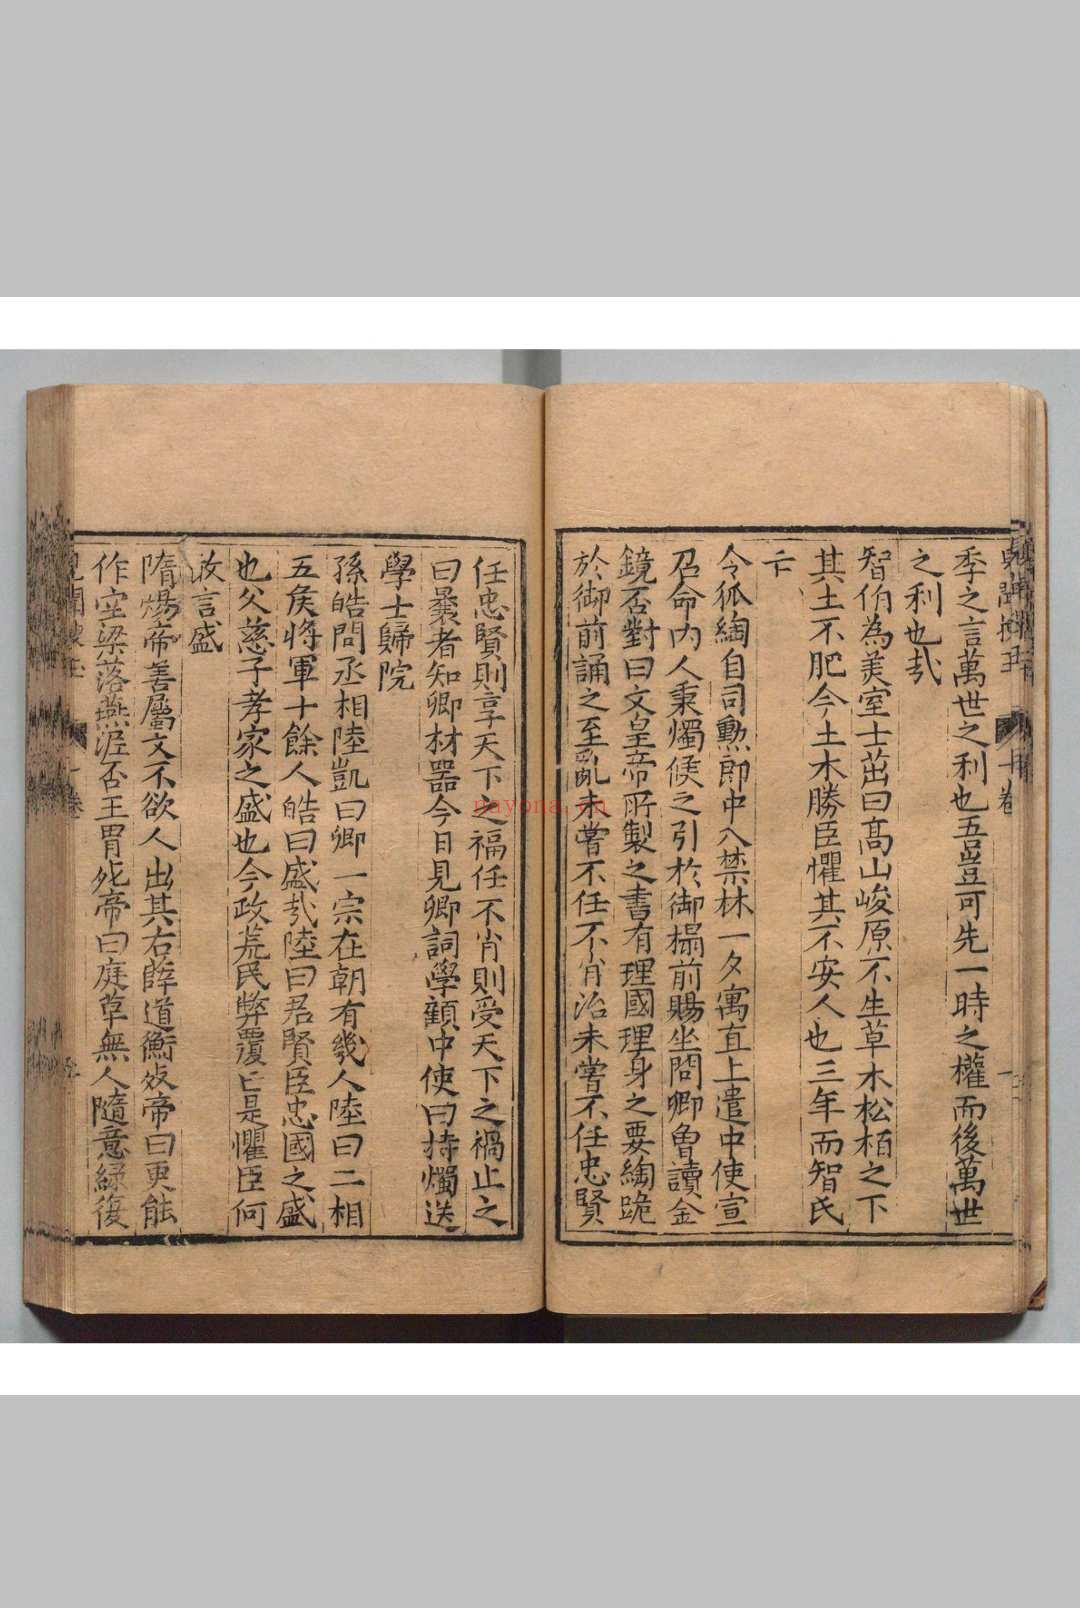 季之言萬世之利也五豈可先一時之權而後萬世
之利也㦲
智伯為美室士茁曰高山峻原不生草木松栢之下
其土不肥今土木勝臣懼其不安人也三年而智氏
亡
令狐綯自司勲郎中入禁林一夕寓直上遣中使宣
召命内人秉燭候之引於御榻前賜坐問卿曾讀金
鏡否對曰文皇帝所製之書有理國理身之要綯跪
於御前誦之至亂未嘗不任不肖治未嘗不任忠賢
任忠賢則享天下之福任不肖則受天下之禍止之
曰曩者知卿材器今日見卿詞學顧中使曰持燭送
學士歸院
孫皓問丞相陸凱曰卿一宗在朝有幾人陸曰二相
五侯將軍十餘人皓曰盛㢤陸曰君賢臣忠國之盛
也父慈子孝家之盛也今政荒民弊覆亡是懼臣何
敢言盛
隋煬帝善屬文不欲人出其右薛道衡死帝曰更能
作空梁落燕泥否王胄死帝曰庭草無人隨意緑復
nayona.cn